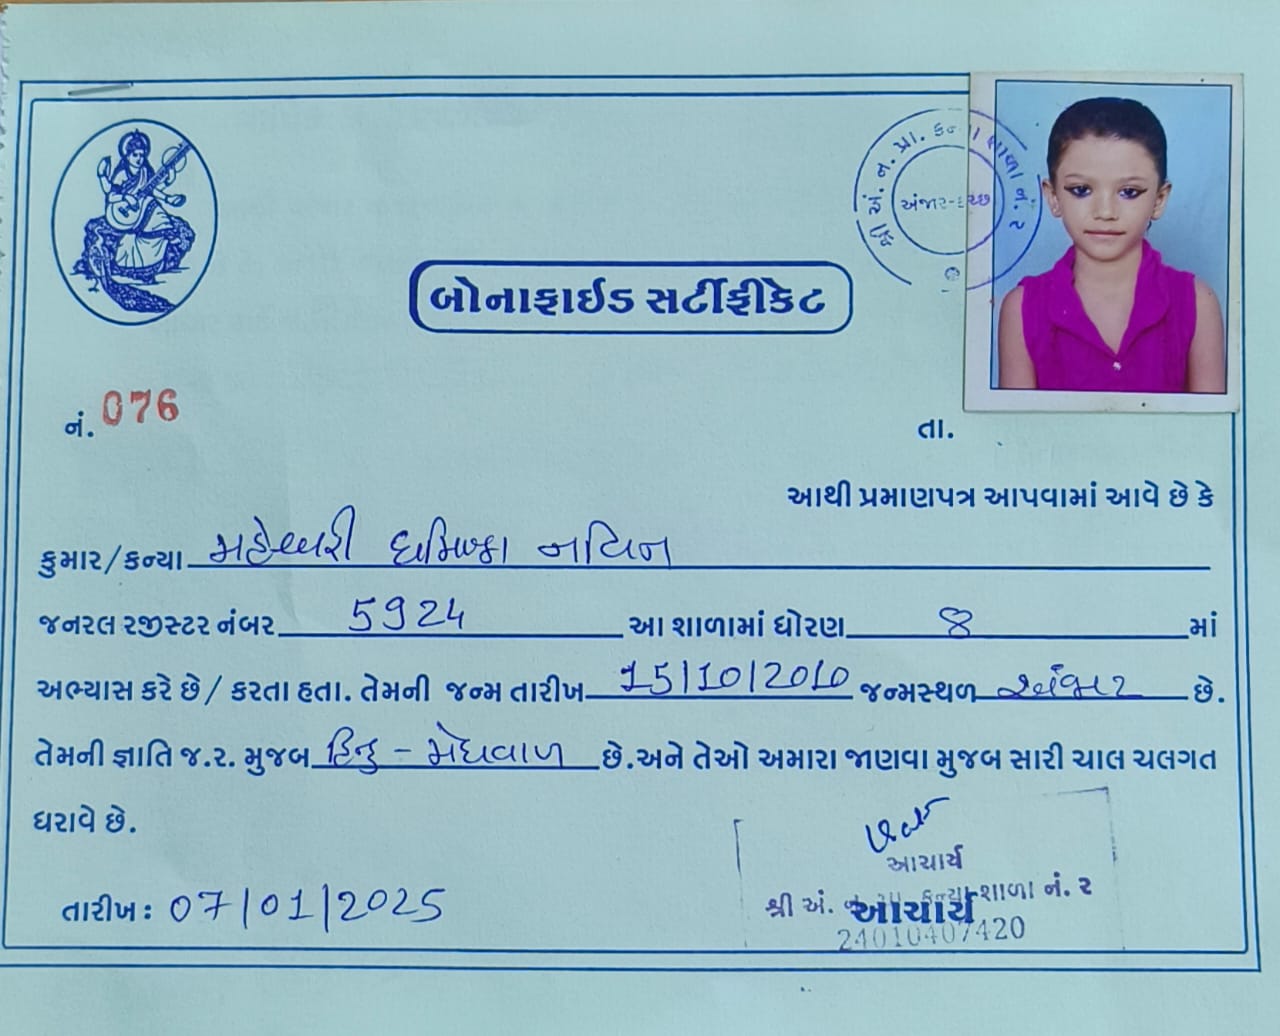 શ્રી અં. ન. પ્રા. કન્યા શાળા નં. ૨
અંજાર-કચ્છ
બોનાફાઈડ સર્ટીફીકેટ
નં. 076
તા.
આથી પ્રમાણપત્ર આપવામાં આવે છે કે
કુમાર/કન્યા મહેશ્વરી ધમિષ્કા નવિન
જનરલ રજીસ્ટર નંબર 5924 આ શાળામાં ધોરણ 8 માં
અભ્યાસ કરે છે/ કરતા હતા. તેમની જન્મ તારીખ 15/10/2010 જન્મસ્થળ અંજાર છે.
તેમની જ્ઞાતિ જ.ર. મુજબ હિન્દુ - મેઘવાળ છે.અને તેઓ અમારા જાણવા મુજબ સારી ચાલ ચલગત
ધરાવે છે.
આચાર્ય
શ્રી અં. ન. પ્રા. કન્યા શાળા નં. ૨
તારીખ: 07/01/2025 આચાર્ય
24010407420